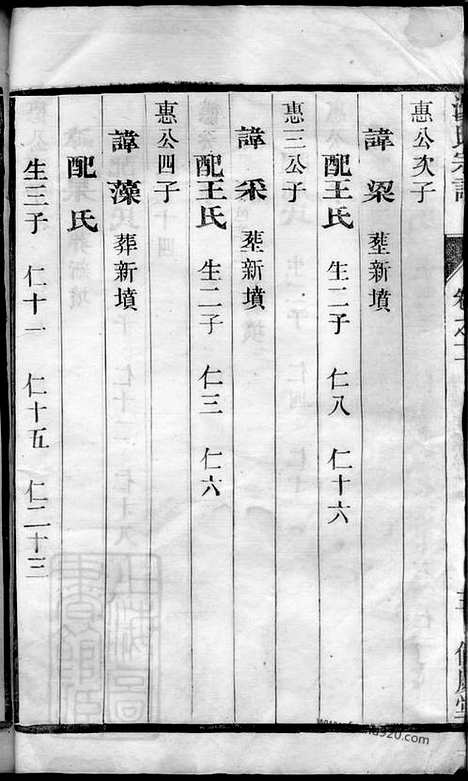 惠公次子
諱梁 塟新墳
配王氏 生二子 仁八 仁十六
惠三公子
諱采 塟新墳
配王氏 生二子 仁三 仁六
惠公四子
諱藻 葬新墳
配 氏
生三子 仁十一 仁十五 仁二十三